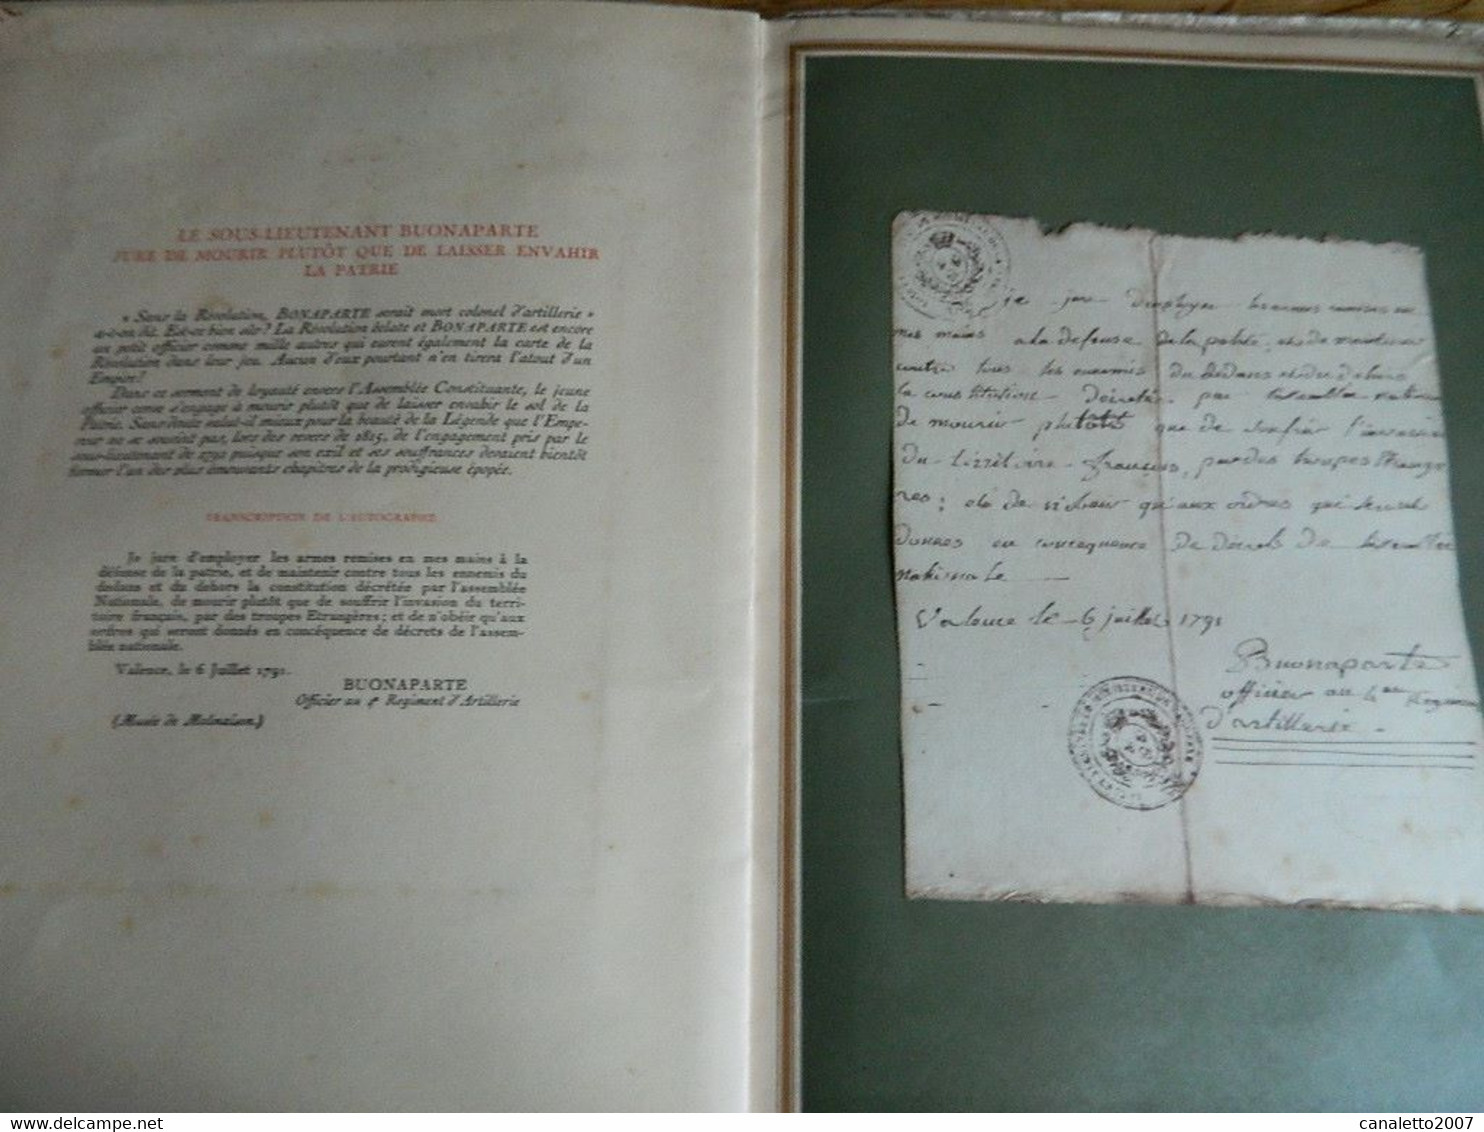 LE SOUS-LIEUTENANT BUONAPARTE
JURE DE MOURIR PLUTÔT QUE DE LAISSER ENVAHIR
LA PATRIE
« Sans la Révolution, BONAPARTE serait mort colonel d'artillerie »
a-t-on dit. Est-ce bien sûr ? La Révolution éclate et BONAPARTE est encore
un petit officier comme mille autres qui eurent également la carte de la
Révolution dans leur jeu. Aucun d'eux pourtant n'en tirera l'atout d'un
Empire ?
Dans ce serment de loyauté envers l'Assemblée Constituante, le jeune
officier corse s'engage à mourir plutôt que de laisser envahir le sol de la
Patrie. Sans doute valut-il mieux pour la beauté de la Légende que l'Empe-
reur ne se souvint pas, lors des revers de 1815, de l'engagement pris par le
sous-lieutenant de 1791 puisque son exil et ses souffrances devaient bientôt
former l'un des plus émouvants chapitres de la prodigieuse épopée.
TRANSCRIPTION DE L'AUTOGRAPHE
Je jure d'employer les armes remises en mes mains à la
défense de la patrie, et de maintenir contre tous les ennemis du
dedans et du dehors la constitution décrétée par l'assemblée
Nationale, de mourir plutôt que de souffrir l'invasion du terri-
toire français, par des troupes Etrangères ; et de n'obéir qu'aux
ordres qui seront donnés en concéquence de décrets de l'assem-
blée nationale.
Valence, le 6 Juillet 1791.
BUONAPARTE
Officier au 4e Regiment d'Artillerie
(Musée de Malmaison.)
je jure D'employer les armes remises en
mes mains a la defense de la patrie, et de maintenir
contre tous les ennemis du dedans et du dehors
la constitution Décrétée par l'assemblée nationale
De mourir plutôt que de soufrir l'invasion
Du territoire français, par des troupes Etrange
res; et de n'obeir qu'aux ordres qui seront
donnes en concequence de décrets de l'assemblee
nationale
Valence le 6 juillet 1791
Buonaparte
officier au 4eme Regiment
d'artillerie.
canaletto2007